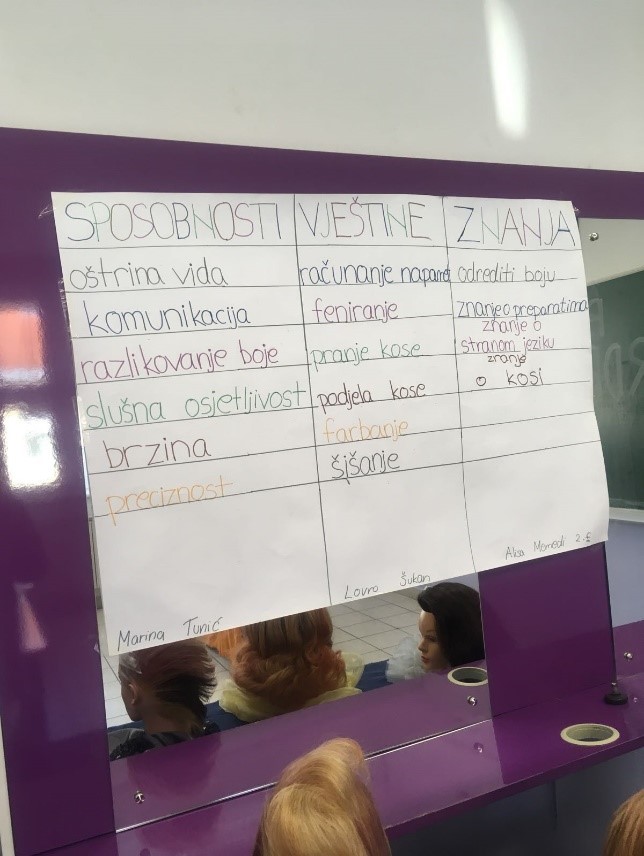 SPOSOBNOSTI
oštrina vida
komunikacija
razlikovanje boje
slušna osjetljivost
brzina
preciznost
Marina Tunić
VJEŠTINE
računanje napamet
feniranje
pranje kose
podjela kose
farbanje
šišanje
Lovro Šukan
ZNANJA
odrediti boju
znanje o preparatima
znanje o
stranom jeziku
znanje
o kosi
2.E